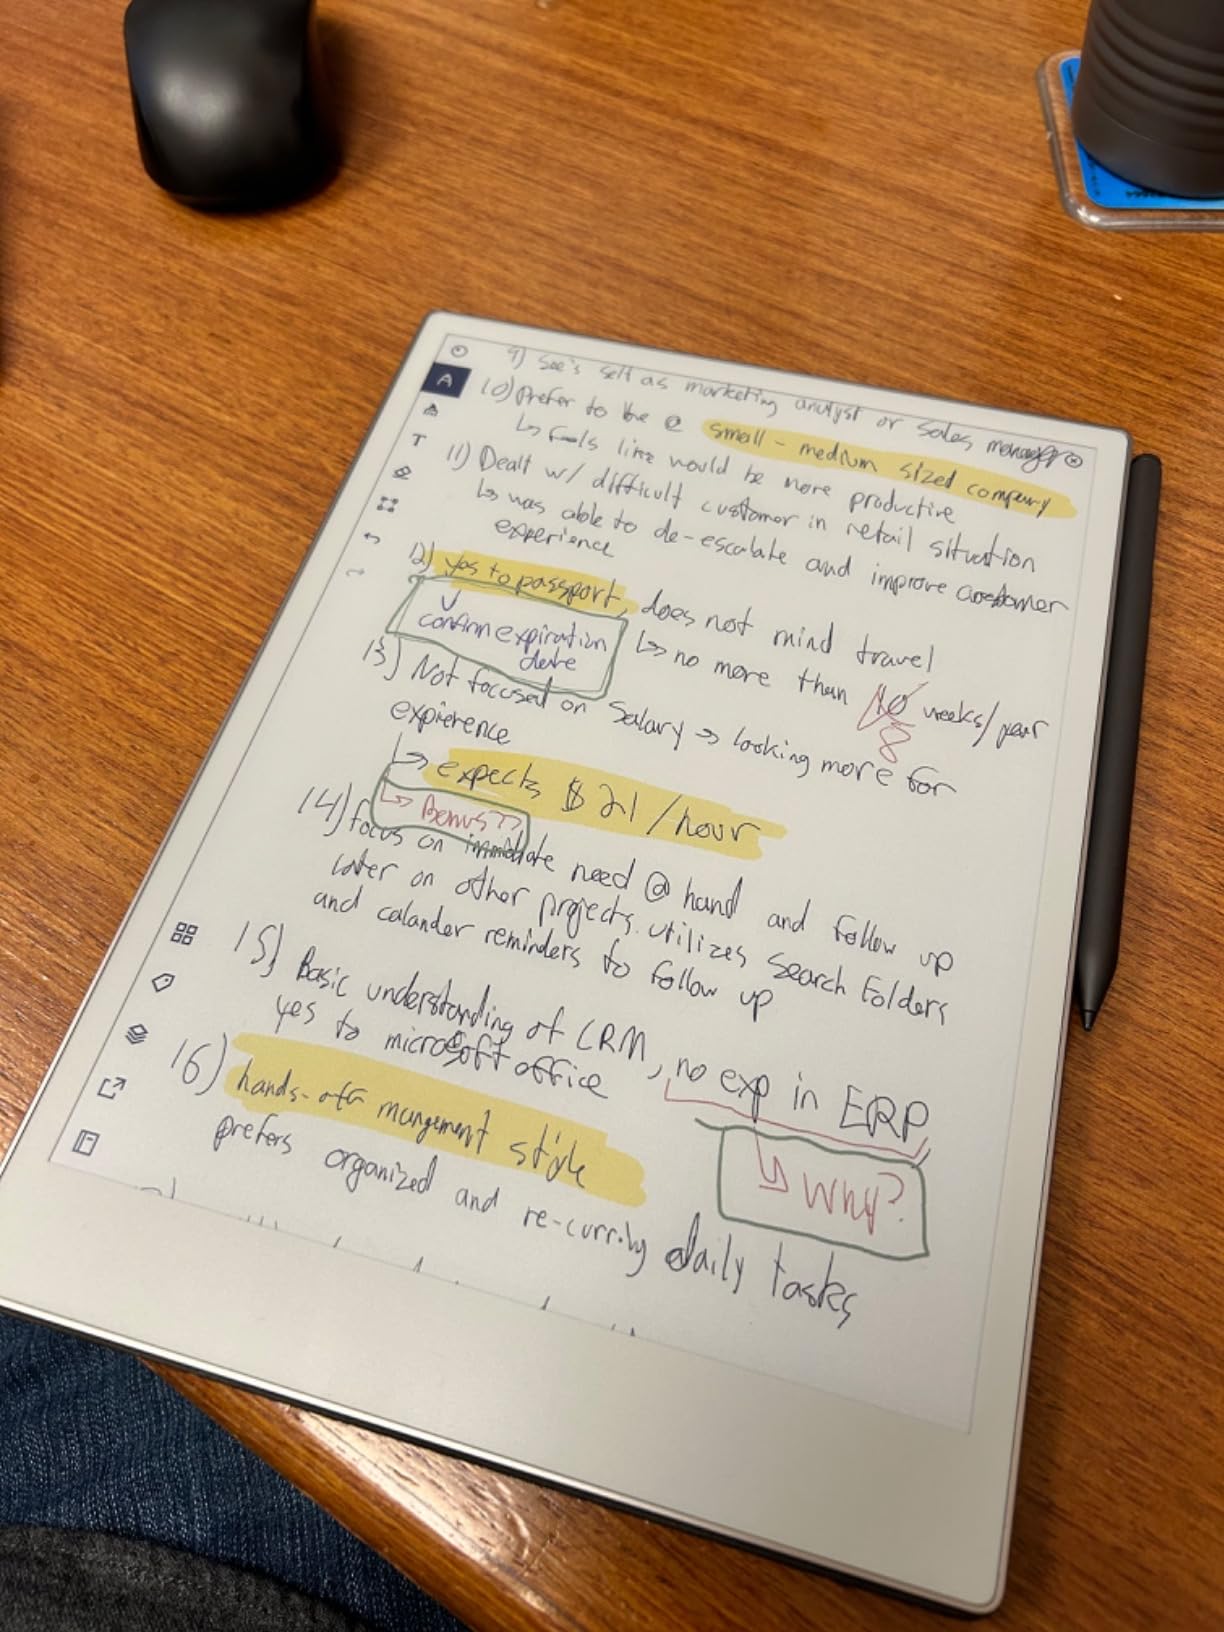 9) See's self as marketing analyst or sales manager
10) Prefer to be @ small - medium sized company
↳ feels like would be more productive
11) Dealt w/ difficult customer in retail situation
↳ was able to de-escalate and improve customer
experience
12) yes to passport, does not mind travel
confirm expiration
date
↳ no more than 10 weeks/year
8
13) Not focused on Salary → looking more for
expierence
↳ expects $21/hour
↳ Bonus??
14) focus on immidiate need @ hand and follow up
later on other projects. utilizes search Folders
and calander reminders to follow up
15) Basic understanding of CRM, no exp in ERP
yes to microsoft office
↳ WHY?
16) hands-off mangement style
prefers organized and re-curring daily tasks
A
T